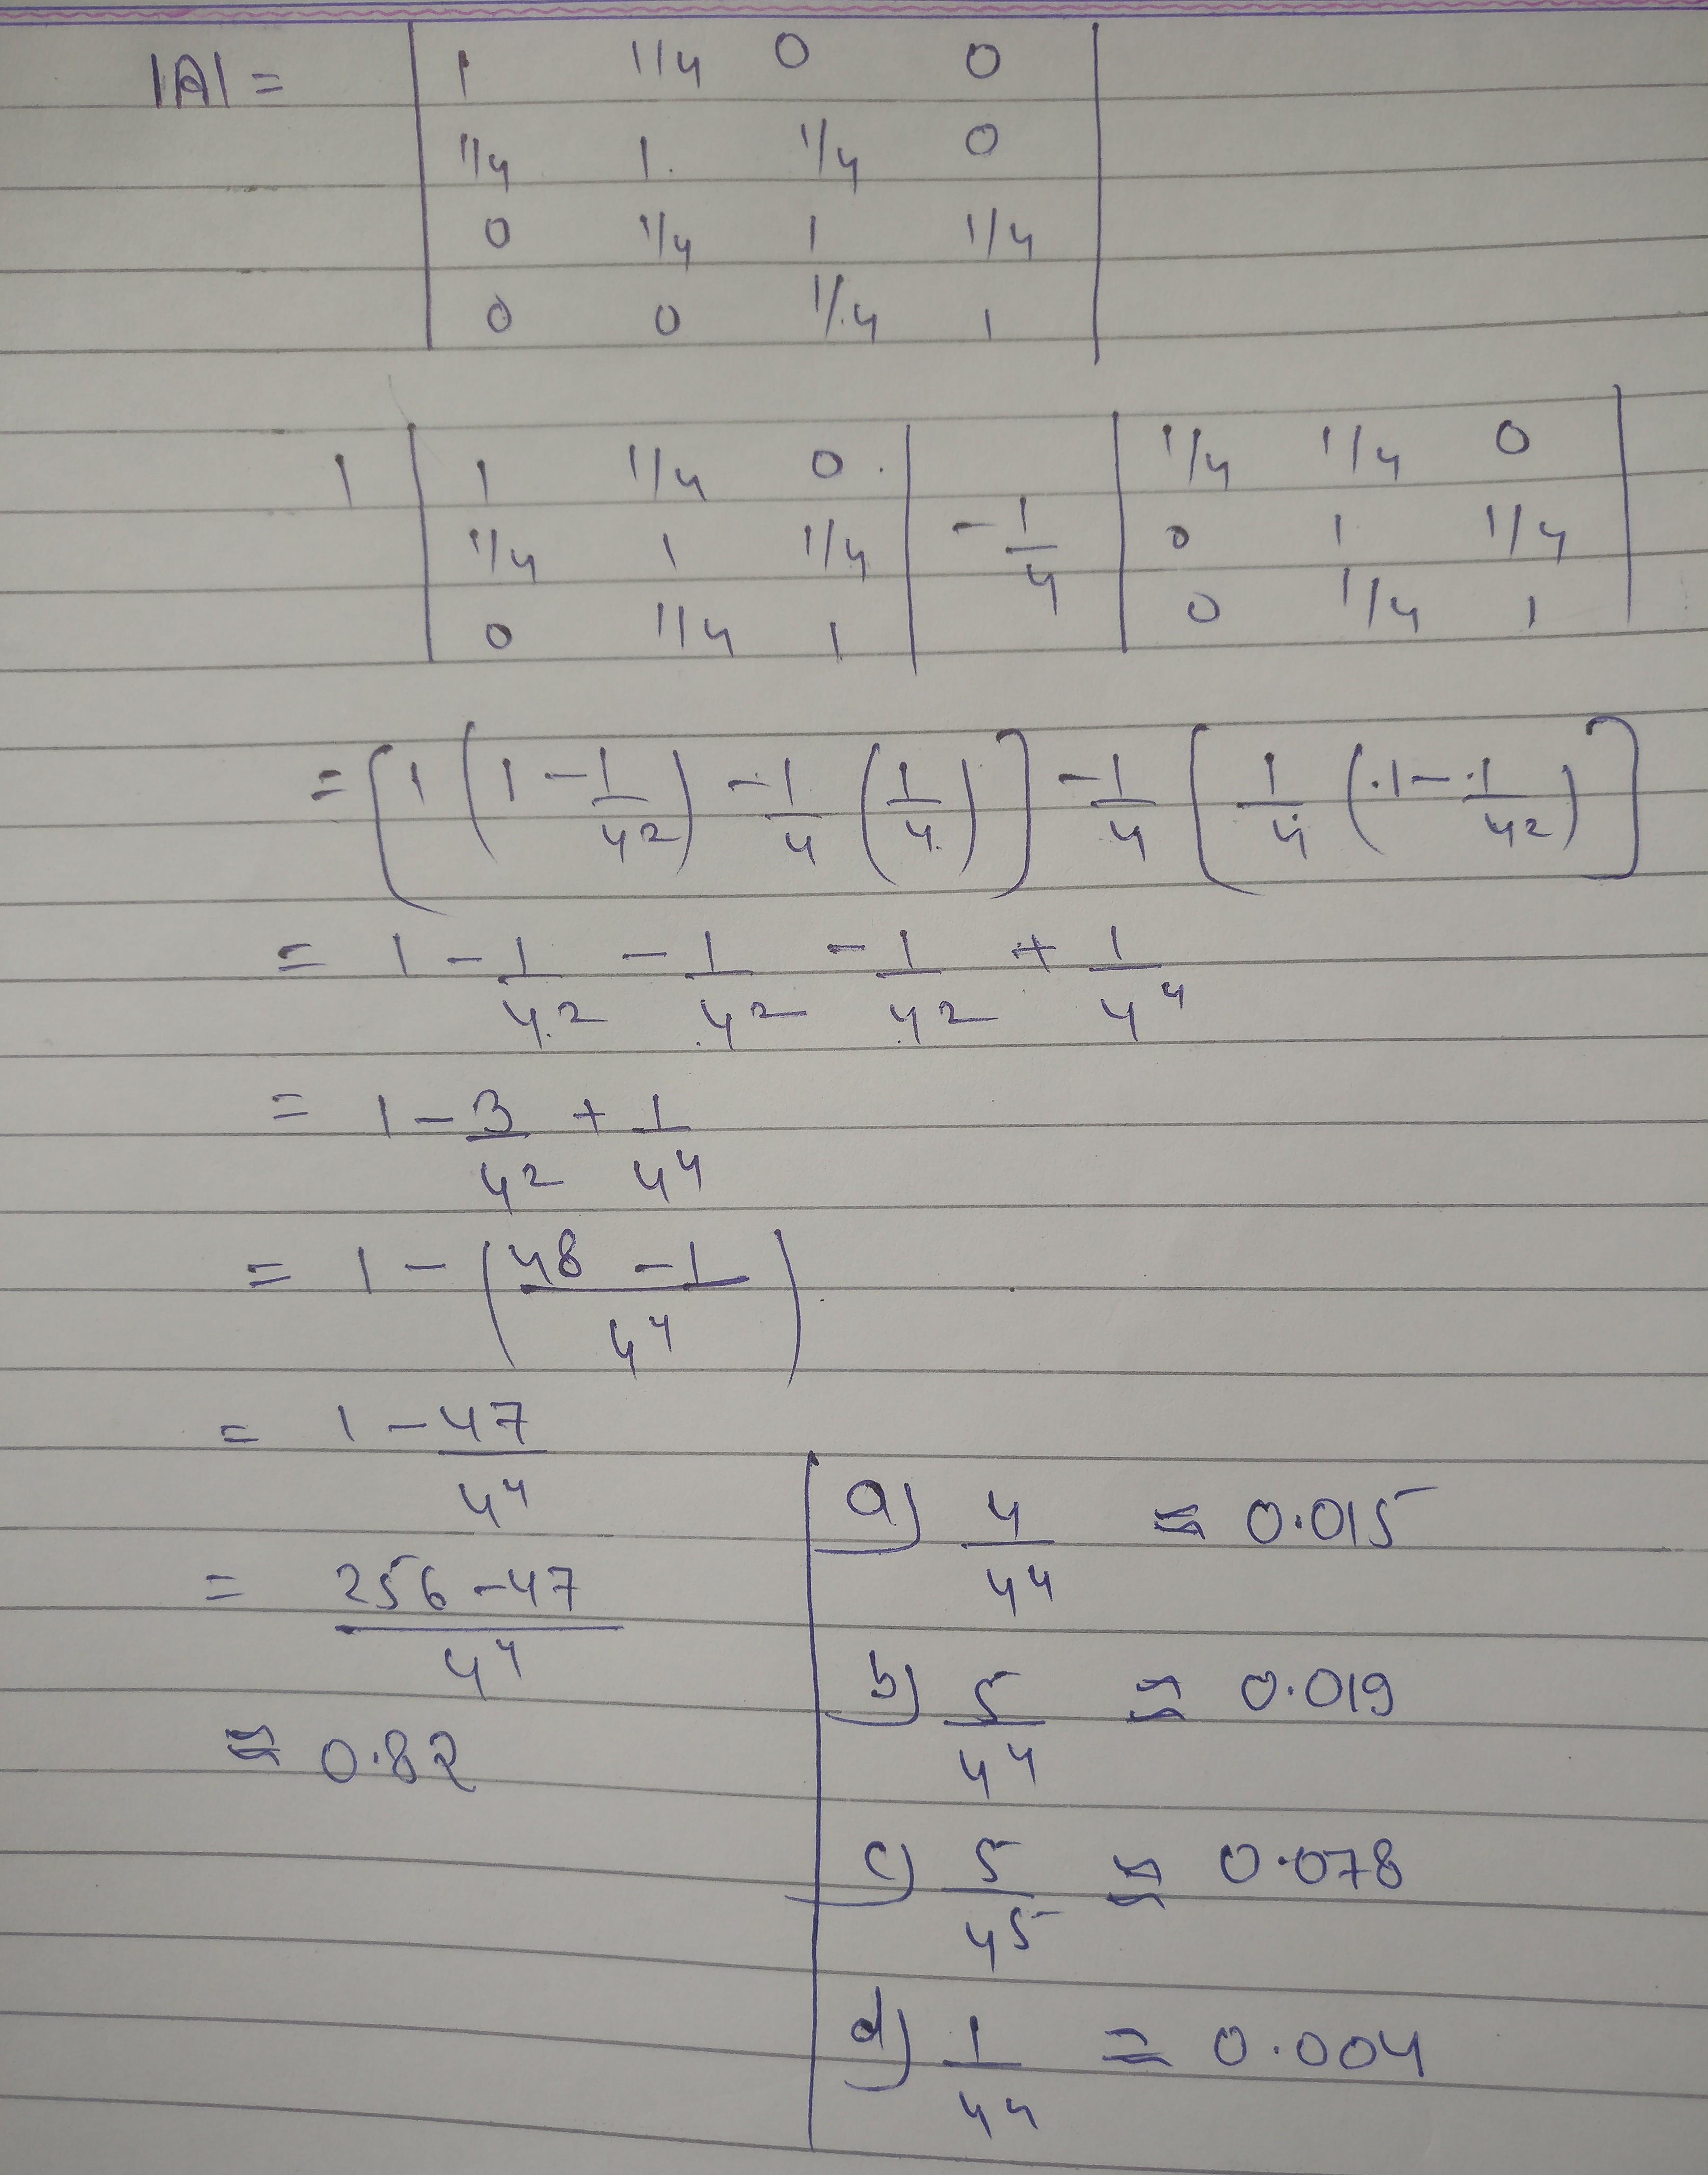 |A| = | 1 1/4 0 0 |
| 1/4 1 1/4 0 |
| 0 1/4 1 1/4 |
| 0 0 1/4 1 |
1 | 1 1/4 0 | - 1/4 | 1/4 1/4 0 |
| 1/4 1 1/4 | | 0 1 1/4 |
| 0 1/4 1 | | 0 1/4 1 |
= [ 1 ( 1 - 1/4² ) - 1/4 ( 1/4 ) ] - 1/4 [ 1/4 ( 1 - 1/4² ) ]
= 1 - 1/4² - 1/4² - 1/4² + 1/4⁴
= 1 - 3/4² + 1/4⁴
= 1 - ( (48 - 1)/4⁴ )
= 1 - 47/4⁴
= (256 - 47)/4⁴
≈ 0.82
a) 4/4⁴ ≈ 0.015
b) 5/4⁴ ≈ 0.019
c) 5/4⁵ ≈ 0.078
d) 1/4⁴ ≈ 0.004